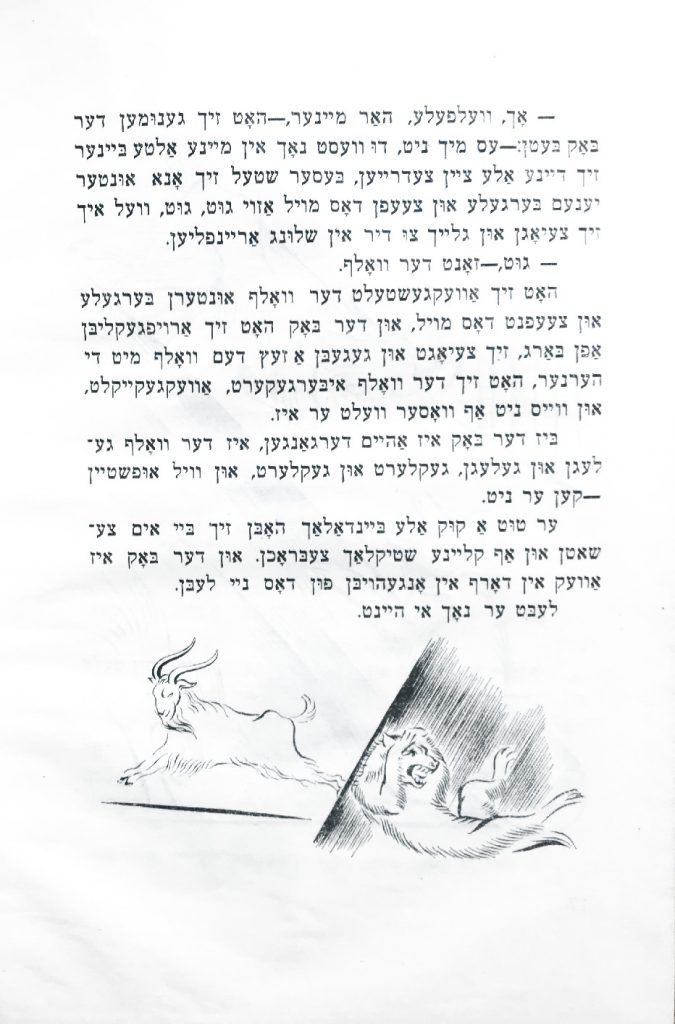 — אָך, וועלפעלע, האַר מיינער,—האָט זיך גענומען דער
באָק בעטן:—עס מיך ניט, דו וועסט נאָך אין מיינע אַלטע ביינער
זיך דיינע אַלע ציין צעדרייען, בעסער שטעל זיך אָנא אונטער
יענעם בערגעלע און צעעפן דאָס מויל אַזוי גוט, גוט, וועל איך
זיך צעיאָגן און גלייך צו דיר אין שלונג אַריינפליען.
— גוט,—זאָגט דער וואָלף.
האָט זיך אַוועקגעשטעלט דער וואָלף אונטערן בערגעלע
און צעעפנט דאָס מויל, און דער באָק האָט זיך אַרויפגעקליבן
אַפן באַרג, זיך צעיאָגט און געגעבן אַ זעץ דעם וואָלף מיט די
הערנער, האָט זיך דער וואָלף איבערגעקערט, אַוועקגעקייקלט,
און ווייס ניט אַף וואָסער וועלט ער איז.
ביז דער באָק איז אַהיים דערגאַנגען, איז דער וואָלף גע־
לעגן און געלעגן, געקלערט און געקלערט, און וויל אופשטיין
—קען ער ניט.
ער טוט אַ קוק אַלע ביינדאַלאַך האָבן זיך ביי אים צע־
שאָטן און אַף קליינע שטיקלאַך צעבראָכן. און דער באָק איז
אַוועק אין דאָרף אין אָנגעהויבן פון דאָס ניי לעבן.
לעבט ער נאָך אי היינט.